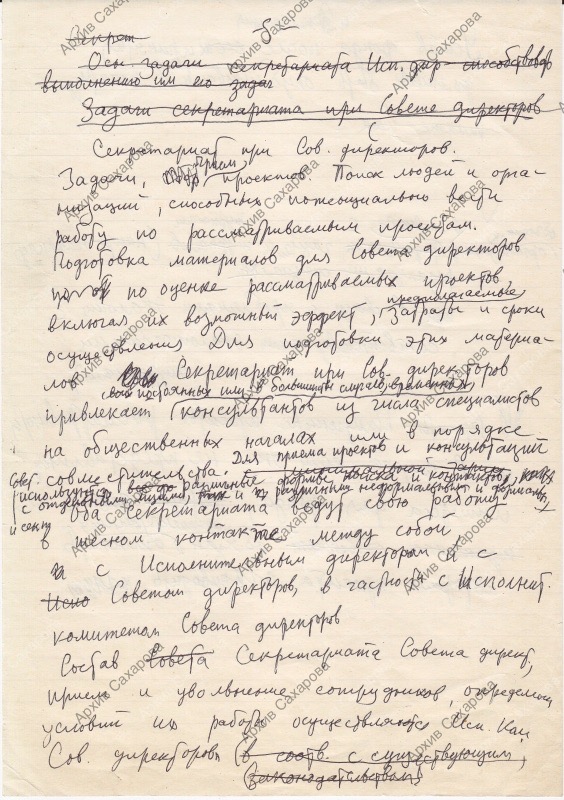 Секрет
-5-
Осн. задачи секретариата Исп. дир способствовать
выполнению им его задач
Задачи секретариата при Совете директоров
Секретариат при Сов. директоров.
Задачи, прием, проектов. Поиск людей и орга-
низаций, способных потенциально вести
работу по рассматриваемым проектам.
Подготовка материалов для Совета директоров
по оценке рассматриваемых проектов
включая их возможный эффект, предполагаемые затраты и сроки
осуществления Для подготовки этих материа-
лов Секретариат при Сов. директоров
привлекает (консультантов из числа специалистов
на общественных началах или в порядке
совместительства. Для приема проектов и консультаций
используются различные формы поиска и контактов, как
с отдельными лицами, так и с различными неформальными и формальн.
Оба Секретариата ведут свою работу
в тесном контакте между собой
и с Исполнительным директором и с
Исно Советом директоров, в частности с Исполнит.
комитетом Совета директоров
Состав Совета Секретариата Совета директ,
прием и увольнение сотрудников, определение
условий их работы осуществляются Исп. Ком.
Сов. директоров (в соотв. с существующим
законодательством)
Архив Сахарова